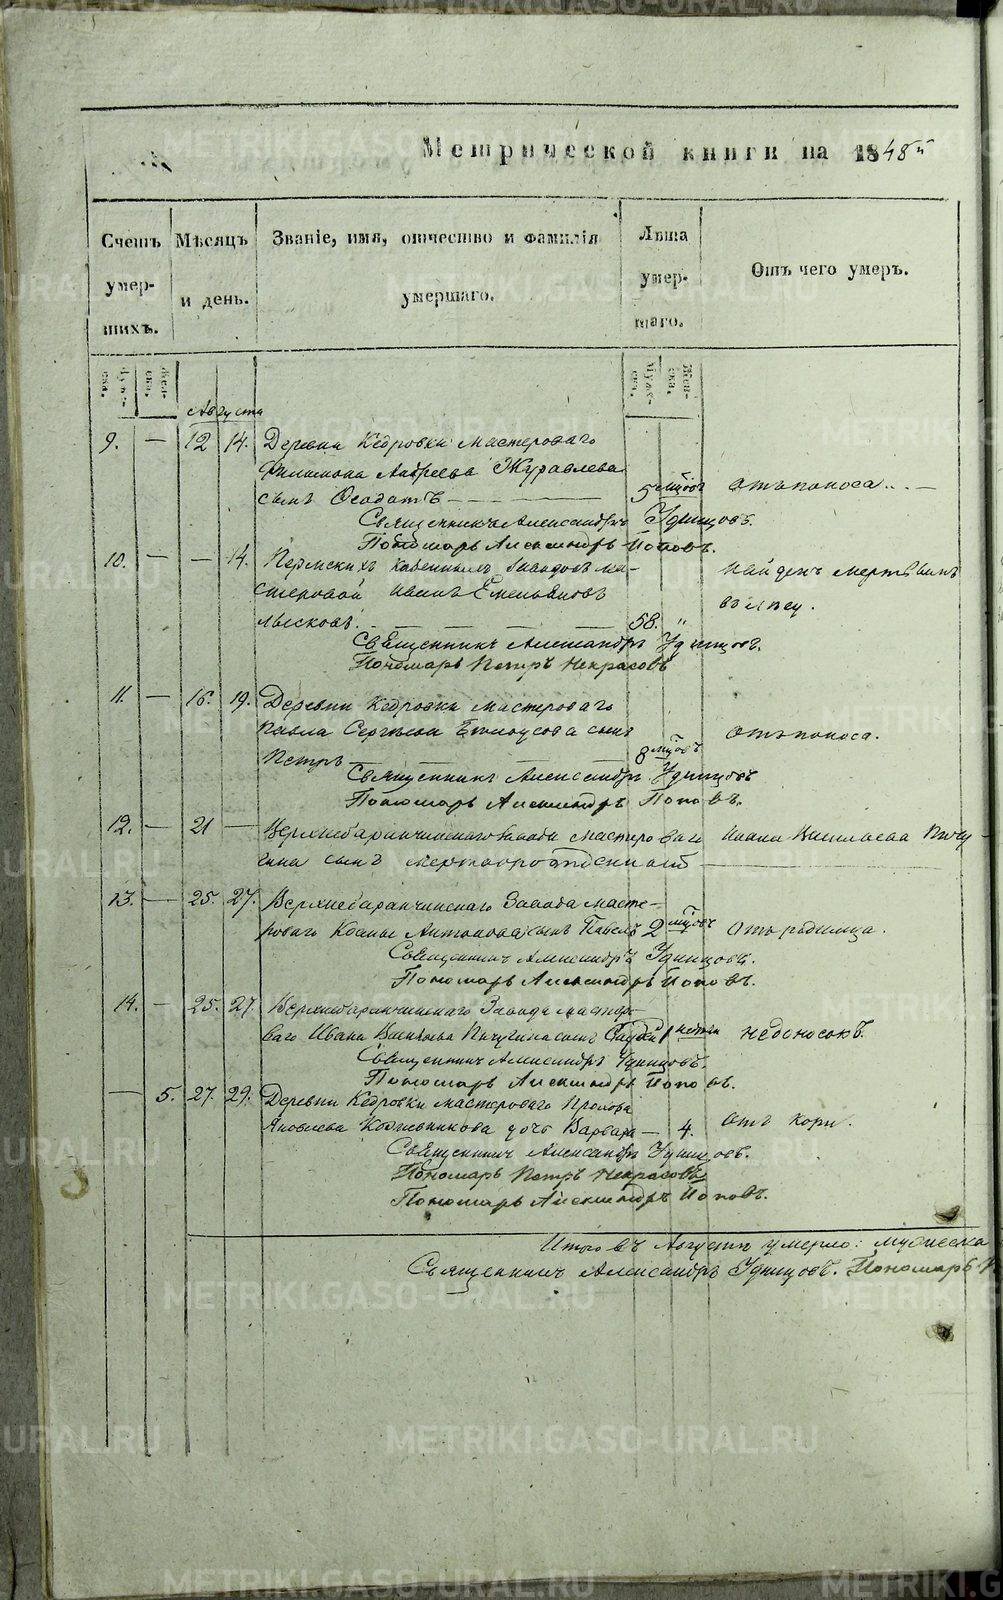 Метрической книги на 1848й
Счетъ умершихъ.
Мѣсяцъ и день.
Званіе, имя, отчество и фамилія умершаго.
Лѣта умершаго.
Отъ чего умеръ.
Августа
9. — 12 14. Деревни Кедровки мастероваго
Филимона Андреева Журавлева
сынъ Ѳеодотъ — 5 мцовъ отъ поноса. . . —
Священникъ Александръ Удинцовъ.
Пономарь Александръ Поповъ.
10. — — 14. Пермскихъ Казенныхъ Заводовъ ма-
стеровой Иванъ Емельяновъ найденъ мертвымъ
58. " въ лѣсу.
Священникъ Александръ Удинцовъ.
Пономарь Петръ Некрасовъ
11. — 16. 19. Деревни Кедровки мастероваго
Павла Сергѣева сынъ отъ поноса.
Петръ 8 мцовъ
Священникъ Александръ Удинцовъ
Пономарь Александръ Поповъ.
12. — 21 — Верхнебаранчинскаго Завода мастероваго Ивана Васильева Пичу-
гина сынъ мертворожденный —
13. — 25. 27. Верхнебаранчинскаго Завода масте-
роваго Антонова сынъ Павелъ 2 мцовъ отъ родимца.
Священникъ Александръ Удинцовъ.
Пономарь Александръ Поповъ.
14. — 25. 27. Верхнебаранчинскаго Завода мастеро-
ваго Ивана Васильева Пичугина сынъ 1 недоносокъ.
Священникъ Александръ Удинцовъ.
Пономарь Александръ Поповъ.
— 5. 27. 29. Деревни Кедровки мастероваго
Яковлева Кожевникова дочь Варвара — 4. отъ кори.
Священникъ Александръ Удинцовъ.
Пономарь Петръ Некрасовъ
Пономарь Александръ Поповъ.
Итого въ Августѣ умерло: мужеска
Священникъ Александръ Удинцовъ. Пономарь
METRIKI.GASO-URAL.RU